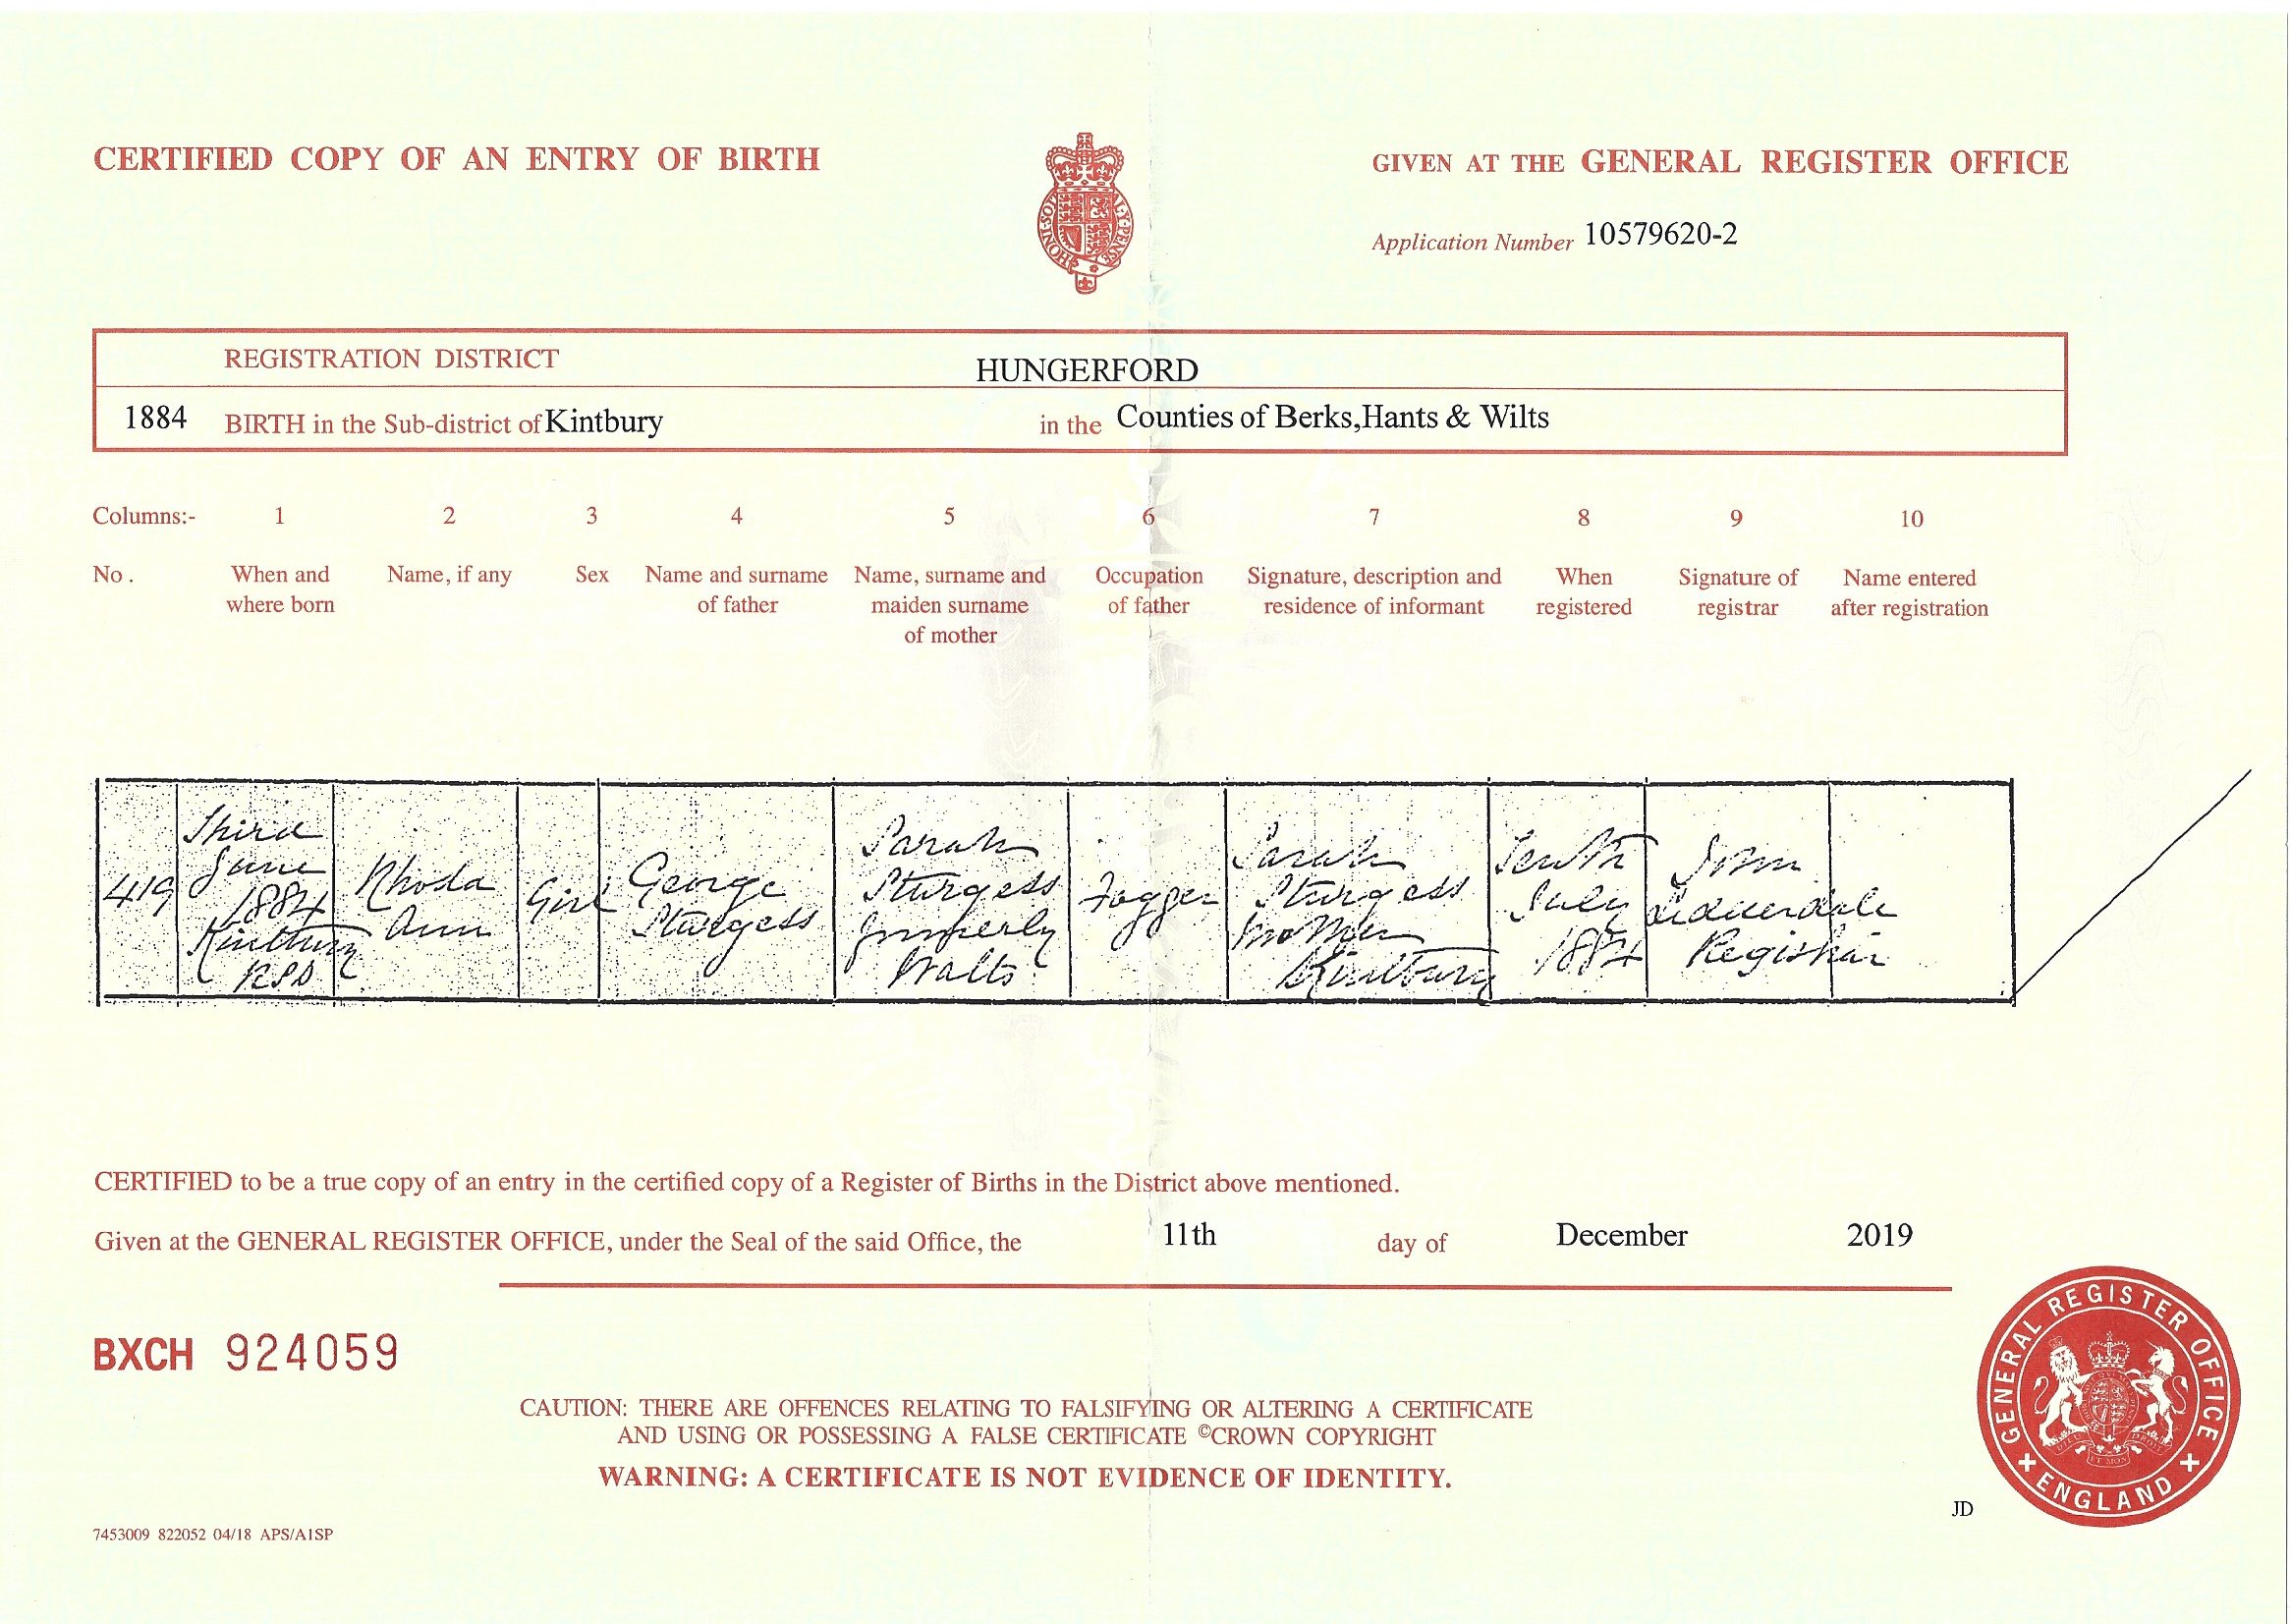 CERTIFIED COPY OF AN ENTRY OF BIRTH
GIVEN AT THE GENERAL REGISTER OFFICE
HONI SOI Y PENSE
Application Number 10579620-2
REGISTRATION DISTRICT HUNGERFORD
1884 BIRTH in the Sub-district of Kintbury in the Counties of Berks,Hants & Wilts
Columns:- 1 2 3 4 5 6 7 8 9 10
No. When and where born
Name, if any
Sex
Name and surname of father
Name, surname and maiden surname of mother
Occupation of father
Signature, description and residence of informant
When registered
Signature of registrar
Name entered after registration
419
Third
June
1884
Kintbury
RSD
Rhoda
Ann
Girl
George
Sturgess
Sarah
Sturgess
formerly
Walts
Fogger
Sarah
Sturgess
Mother
Kintbury
Tenth
July
1884
John
Registrar
CERTIFIED to be a true copy of an entry in the certified copy of a Register of Births in the District above mentioned.
Given at the GENERAL REGISTER OFFICE, under the Seal of the said Office, the 11th day of December 2019
BXCH 924059
CAUTION: THERE ARE OFFENCES RELATING TO FALSIFYING OR ALTERING A CERTIFICATE
AND USING OR POSSESSING A FALSE CERTIFICATE ©CROWN COPYRIGHT
WARNING: A CERTIFICATE IS NOT EVIDENCE OF IDENTITY.
GENERAL REGISTER OFFICE
ENGLAND
JD
7453009 822052 04/18 APS/A1SP